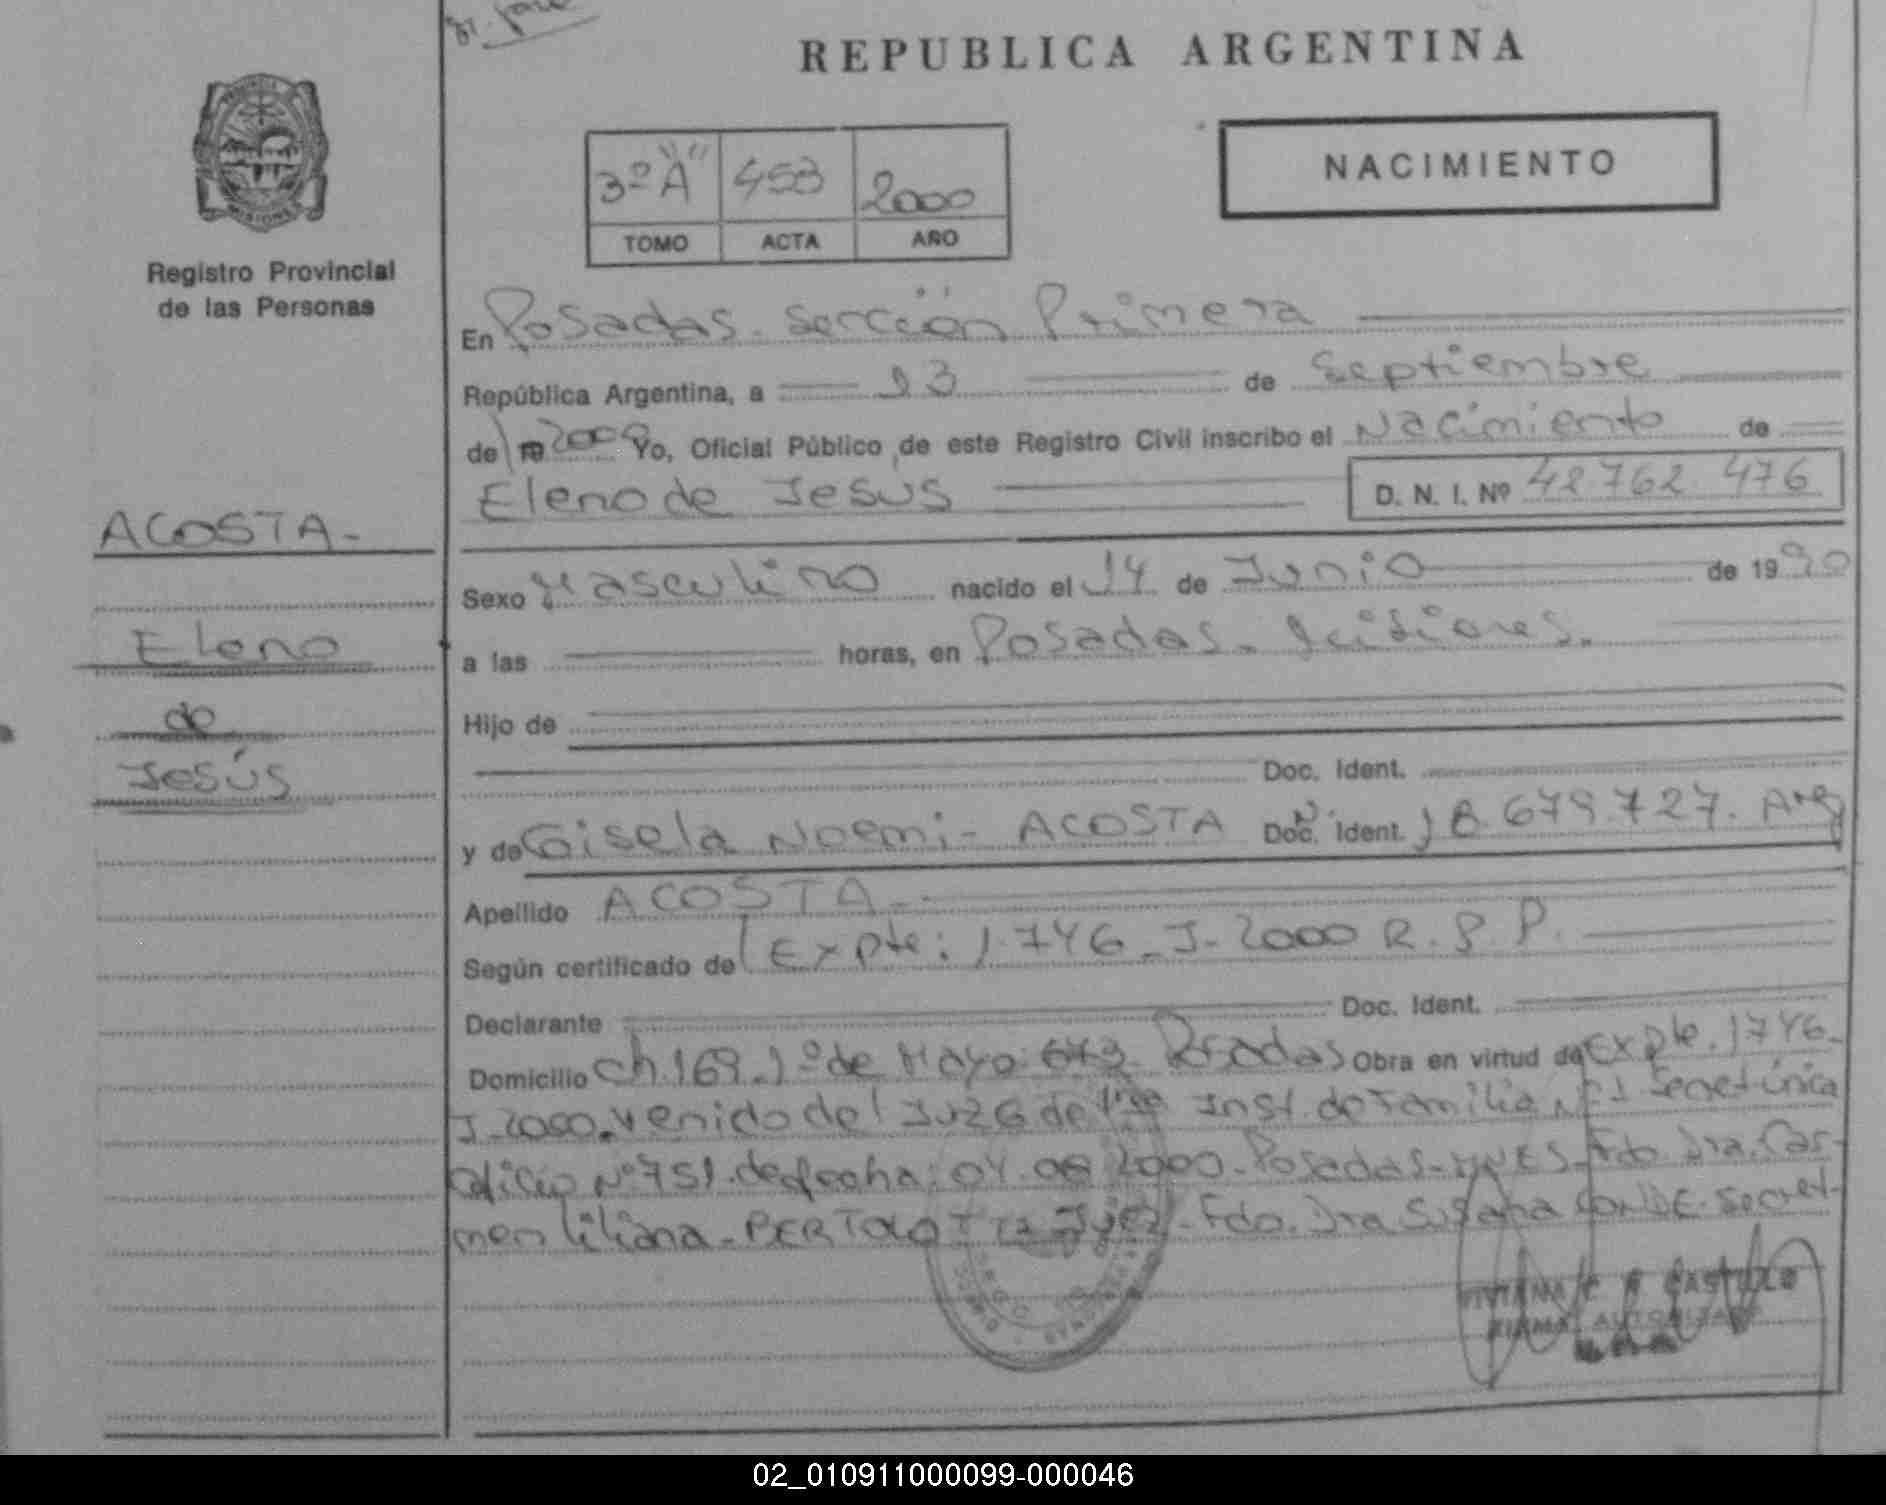 REPUBLICA ARGENTINA
NACIMIENTO
3º "A" 453 2000
TOMO ACTA AÑO
MISIONES
Registro Provincial
de las Personas
En Posadas. Sección Primera
República Argentina, a 13 de Septiembre
de 19 2000 Yo, Oficial Público de este Registro Civil inscribo el Nacimiento de
Eleno de Jesus D. N. I. Nº 42 762 476
ACOSTA-
Eleno
de
Jesús
Sexo Masculino nacido el 14 de Junio de 1990
a las horas, en Posadas. Misiones.
Hijo de
Doc. Ident.
y de Gisela Noemi- ACOSTA Doc. Ident. 18.679.727. Arg
Apellido ACOSTA-
Según certificado de Expte: 1746-J-2000 R.P.P.
Declarante Doc. Ident.
Domicilio ch.169.1º de Mayo 673 Posadas Obra en virtud de Expte.1746-
J-2000.venido del Juzg de 1ra Inst. de Familia Nº1 Secret única
Oficio Nº751.de fecha: 04.08 2000-Posadas-MNES-Fdo. Dra. Car-
men liliana-BERTOLOTTI Juez-Fdo. Dra Susana CONDE-Secret-
VIVIANA C R CASTILLO
FIRMA AUTORIZADA
02_010911000099-000046